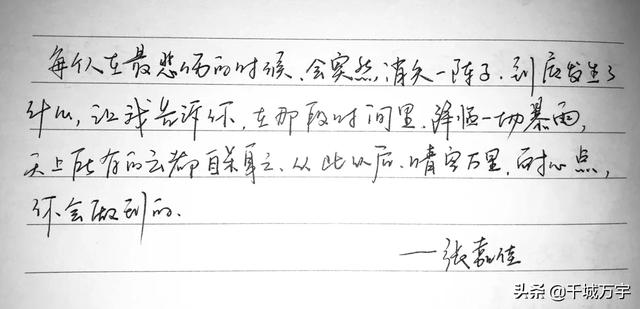 每个人在最悲伤的时候、会突然消失一阵子.到底发生了
什么,让我告诉你,在那段时间里.降临一切暴雨,
天上所有的云都自杀身亡、从此以后、晴空万里.耐心点,
你会做到的.
——张嘉佳
头条@千城万宇